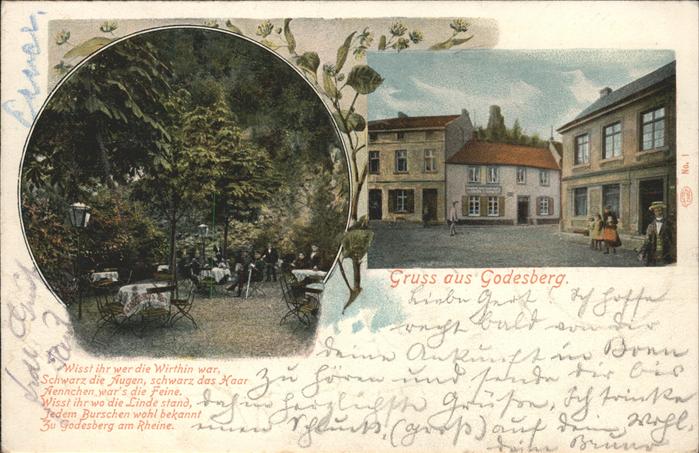 Gruss aus Godesberg.
No. 1
Wisst ihr wer die Wirthin war,
Schwarz die Augen, schwarz das Haar
Aennchen war's die Feine.
Wisst ihr wo die Linde stand,
Jedem Burschen wohl bekannt
Zu Godesberg am Rheine.
Liebe Gert Ich hoffe
recht bald von dir
deine Ankunft in Bonn
zu hören und sende dir bis
dahin herzlichste Grüsse. Ich trinke
einen Schluck (groß) auf dein Wohl.
dein Bruno